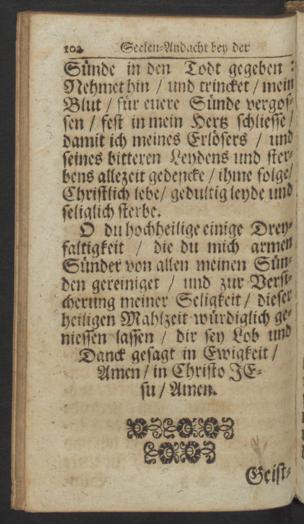 102 Seelen-Andacht bey der
Sünde in den Todt gegeben:
Nehmet hin / und trincket / mein
Blut / für euere Sünde vergos-
sen / fest in mein Hertz schliesse /
damit ich meines Erlösers / und
seines bitteren Leydens und ster-
bens allezeit gedencke / ihme folge /
Christlich lebe / gedultig leyde und
seliglich sterbe.
O du hochheilige einige Drey-
faltigkeit / die du mich armen
Sünder von allen meinen Sün-
den gereiniget / und zur Versi-
cherung meiner Seligkeit / dieser
heiligen Mahlzeit würdiglich ge-
niessen lassen / dir sey Lob und
Danck gesagt in Ewigkeit /
Amen / in Christo JE-
su / Amen.
Geist-